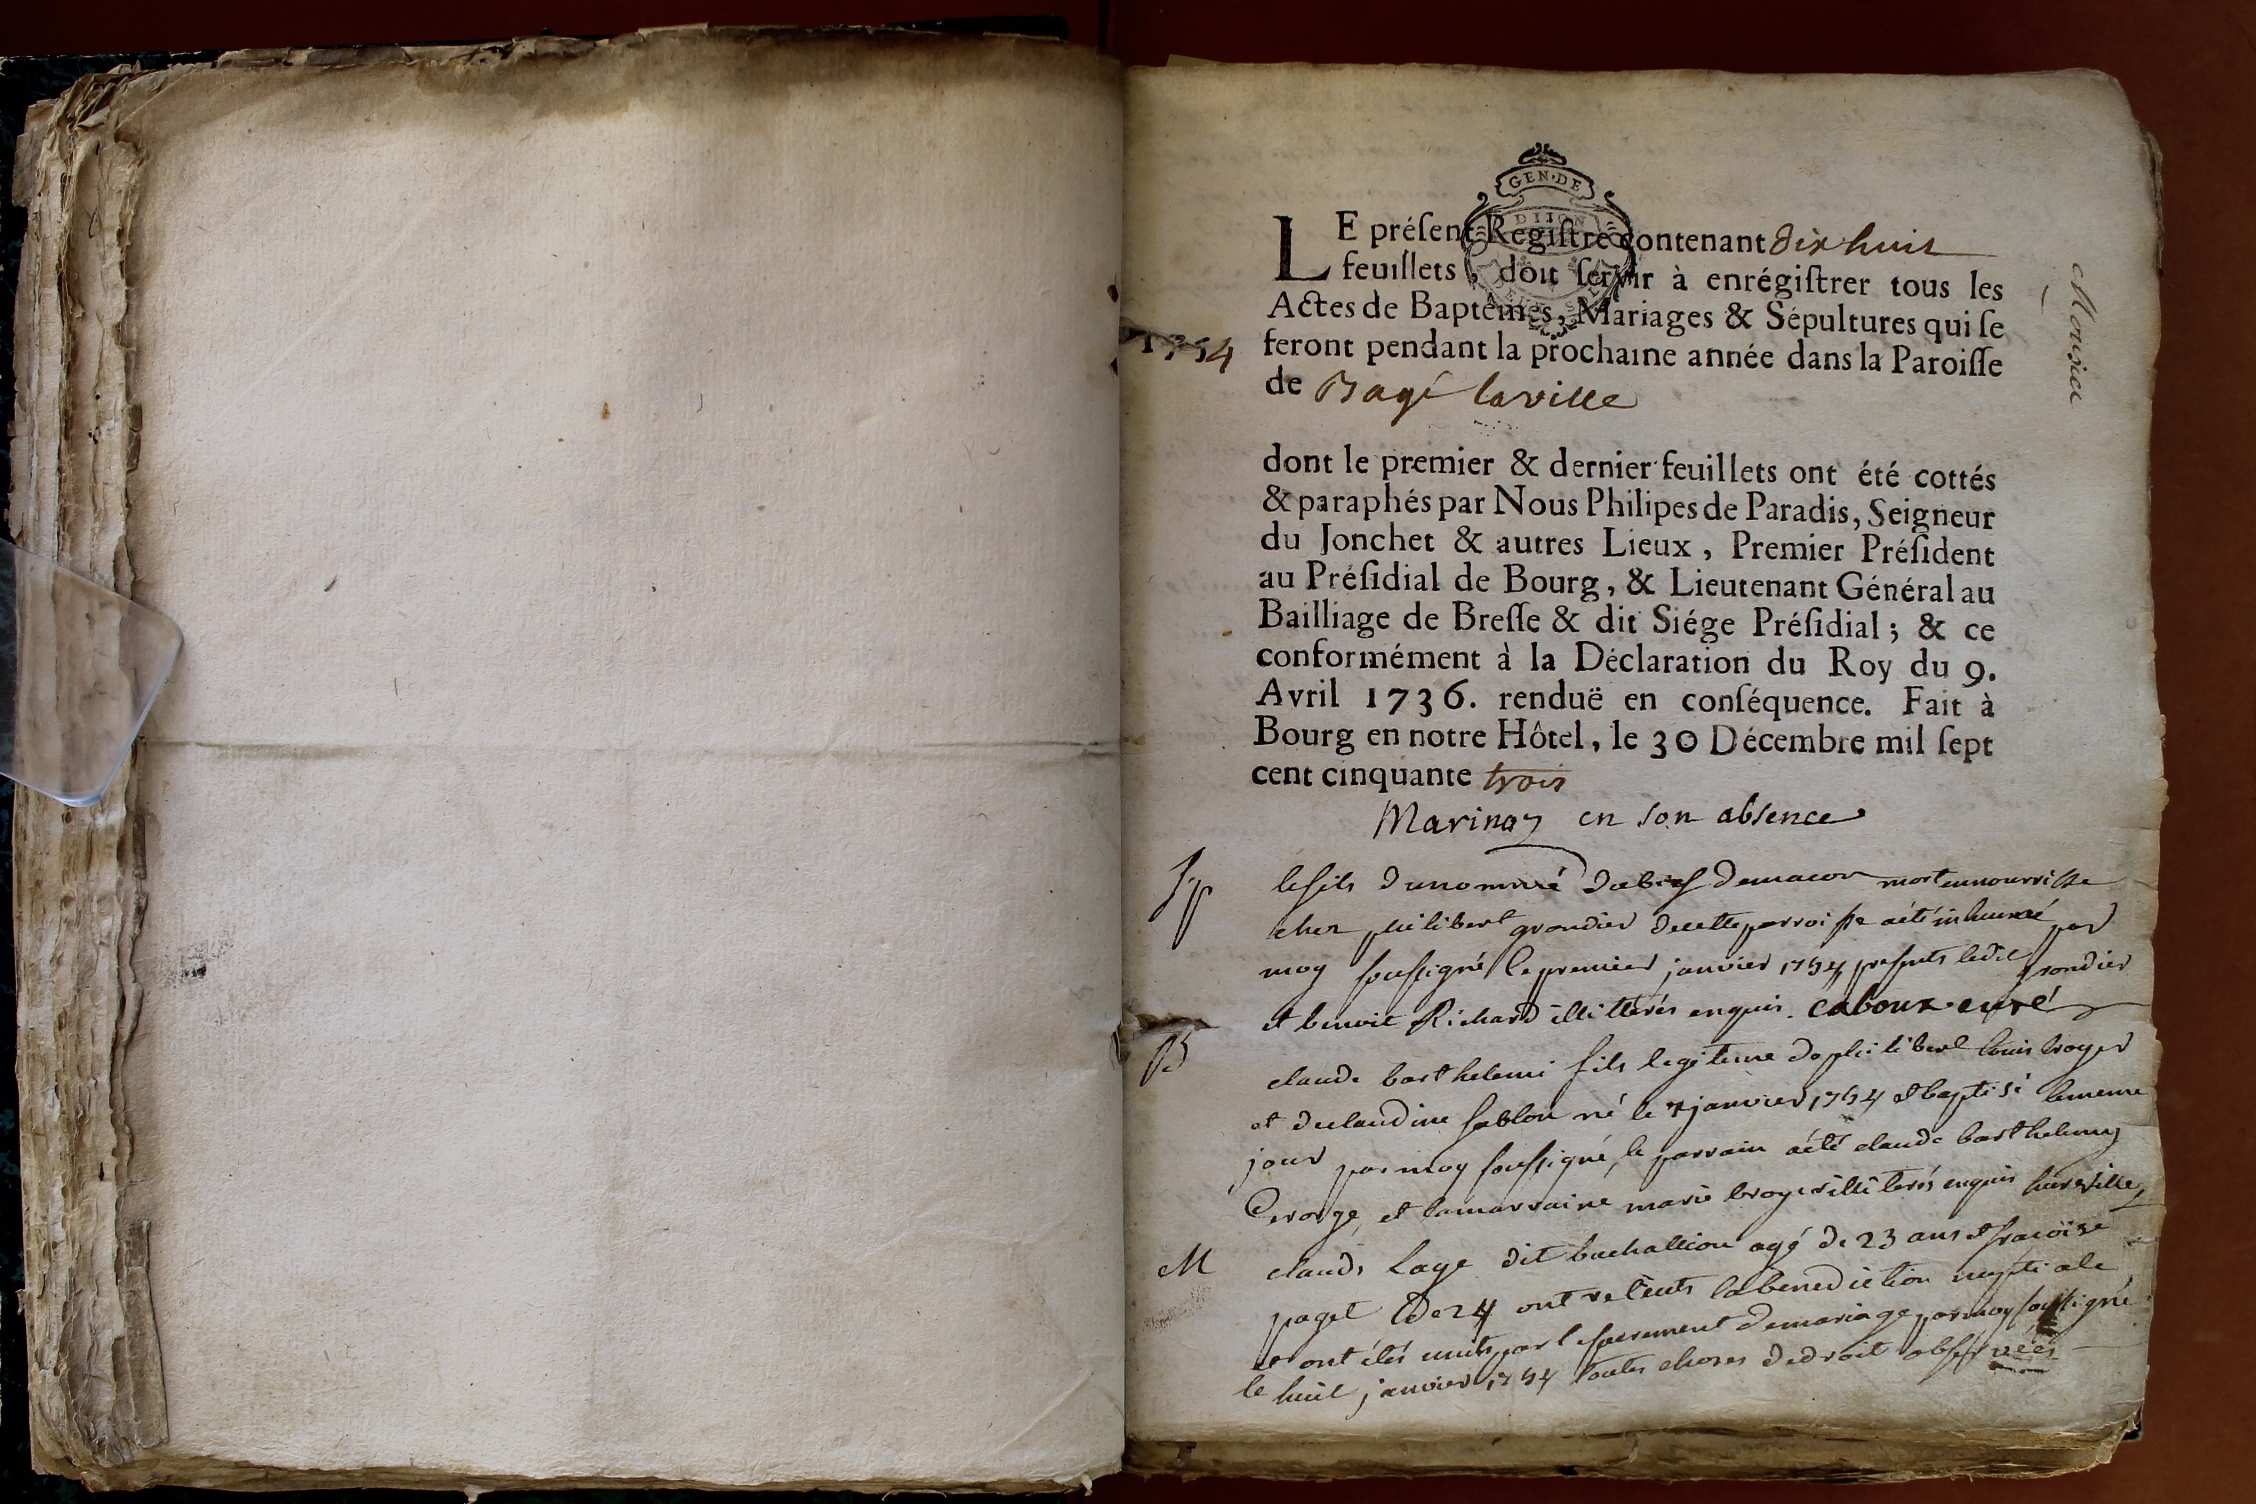 GEN·DE
DIJON
LE préſent Regiſtre contenant dix huit
feuillets, doit ſervir à enrégiſtrer tous les
Actes de Baptêmes, Mariages & Sépultures qui ſe
1754
feront pendant la prochaine année dans la Paroiſſe
de Bagé laville
dont le premier & dernier feuillets ont été cottés
& paraphés par Nous Philipes de Paradis, Seigneur
du Jonchet & autres Lieux, Premier Préſident
au Préſidial de Bourg, & Lieutenant Général au
Bailliage de Breſſe & dit Siége Préſidial; & ce
conformément à la Déclaration du Roy du 9.
Avril 1736. renduë en conſéquence. Fait à
Bourg en notre Hôtel, le 30 Décembre mil ſept
cent cinquante trois
en son absence
le fils dunommé demacon mort ennourrisse
chez philibert grondier decette parroisse aété inhumé par
moy soussigné le premier janvier 1754 presents ledit grondier
et benoit Richard illitterés enquis. caboux curé
B
claude barthelemi fils legitime de philibert louis broyer
et declaudine sablon né le 7 janvier 1754 et baptisé lememe
jour par moy soussigné, le parrain aété claude barthelemy
george, et lamarraine marie broyer illiterés enquis
M
claude Lage dit agé de 23 ans et francoise
paget de 24 ont labenediction nuptiale
et ont étés units par le sacrement demariage par moy soussigné
le huit janvier 1754 toutes choses dedroit observées